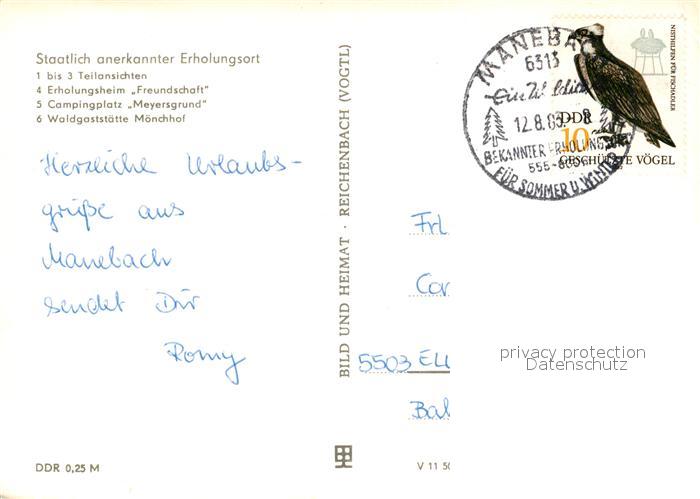 Staatlich anerkannter Erholungsort
1 bis 3 Teilansichten
4 Erholungsheim „Freundschaft"
5 Campingplatz „Meyersgrund"
6 Waldgaststätte Mönchhof
Herzliche Urlaubs-
grüße aus
Manebach
sendet Dir
Romy
DDR 0,25 M
BILD UND HEIMAT · REICHENBACH (VOGTL)
V 11 50
MANEBA
6313
12.8.83 - 8
BEKANNTER ERHOLUNGSORT
FÜR SOMMER U. WINTER
NISTHILFEN FÜR FISCHADLER
DDR
10
GESCHÜTZTE VÖGEL
Frl.
5503
privacy protection
Datenschutz